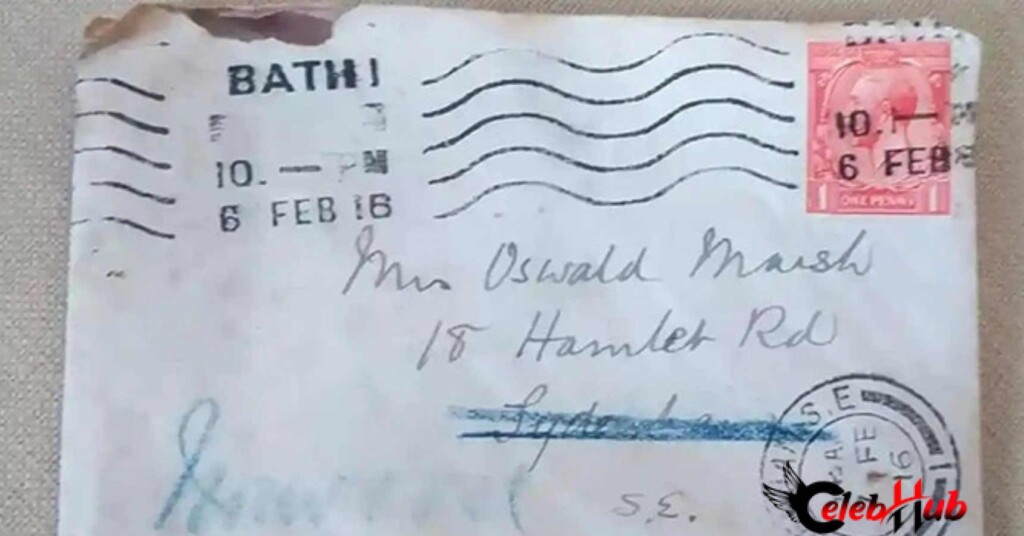 BATH 1
10. — PM
6 FEB 16
10.1—
6 FEB
1 ONE PENNY 1
Mrs Oswald Marsh
18 Hamlet Rd
Sydenham
S.E.
S.E
FE
16
CelebHub